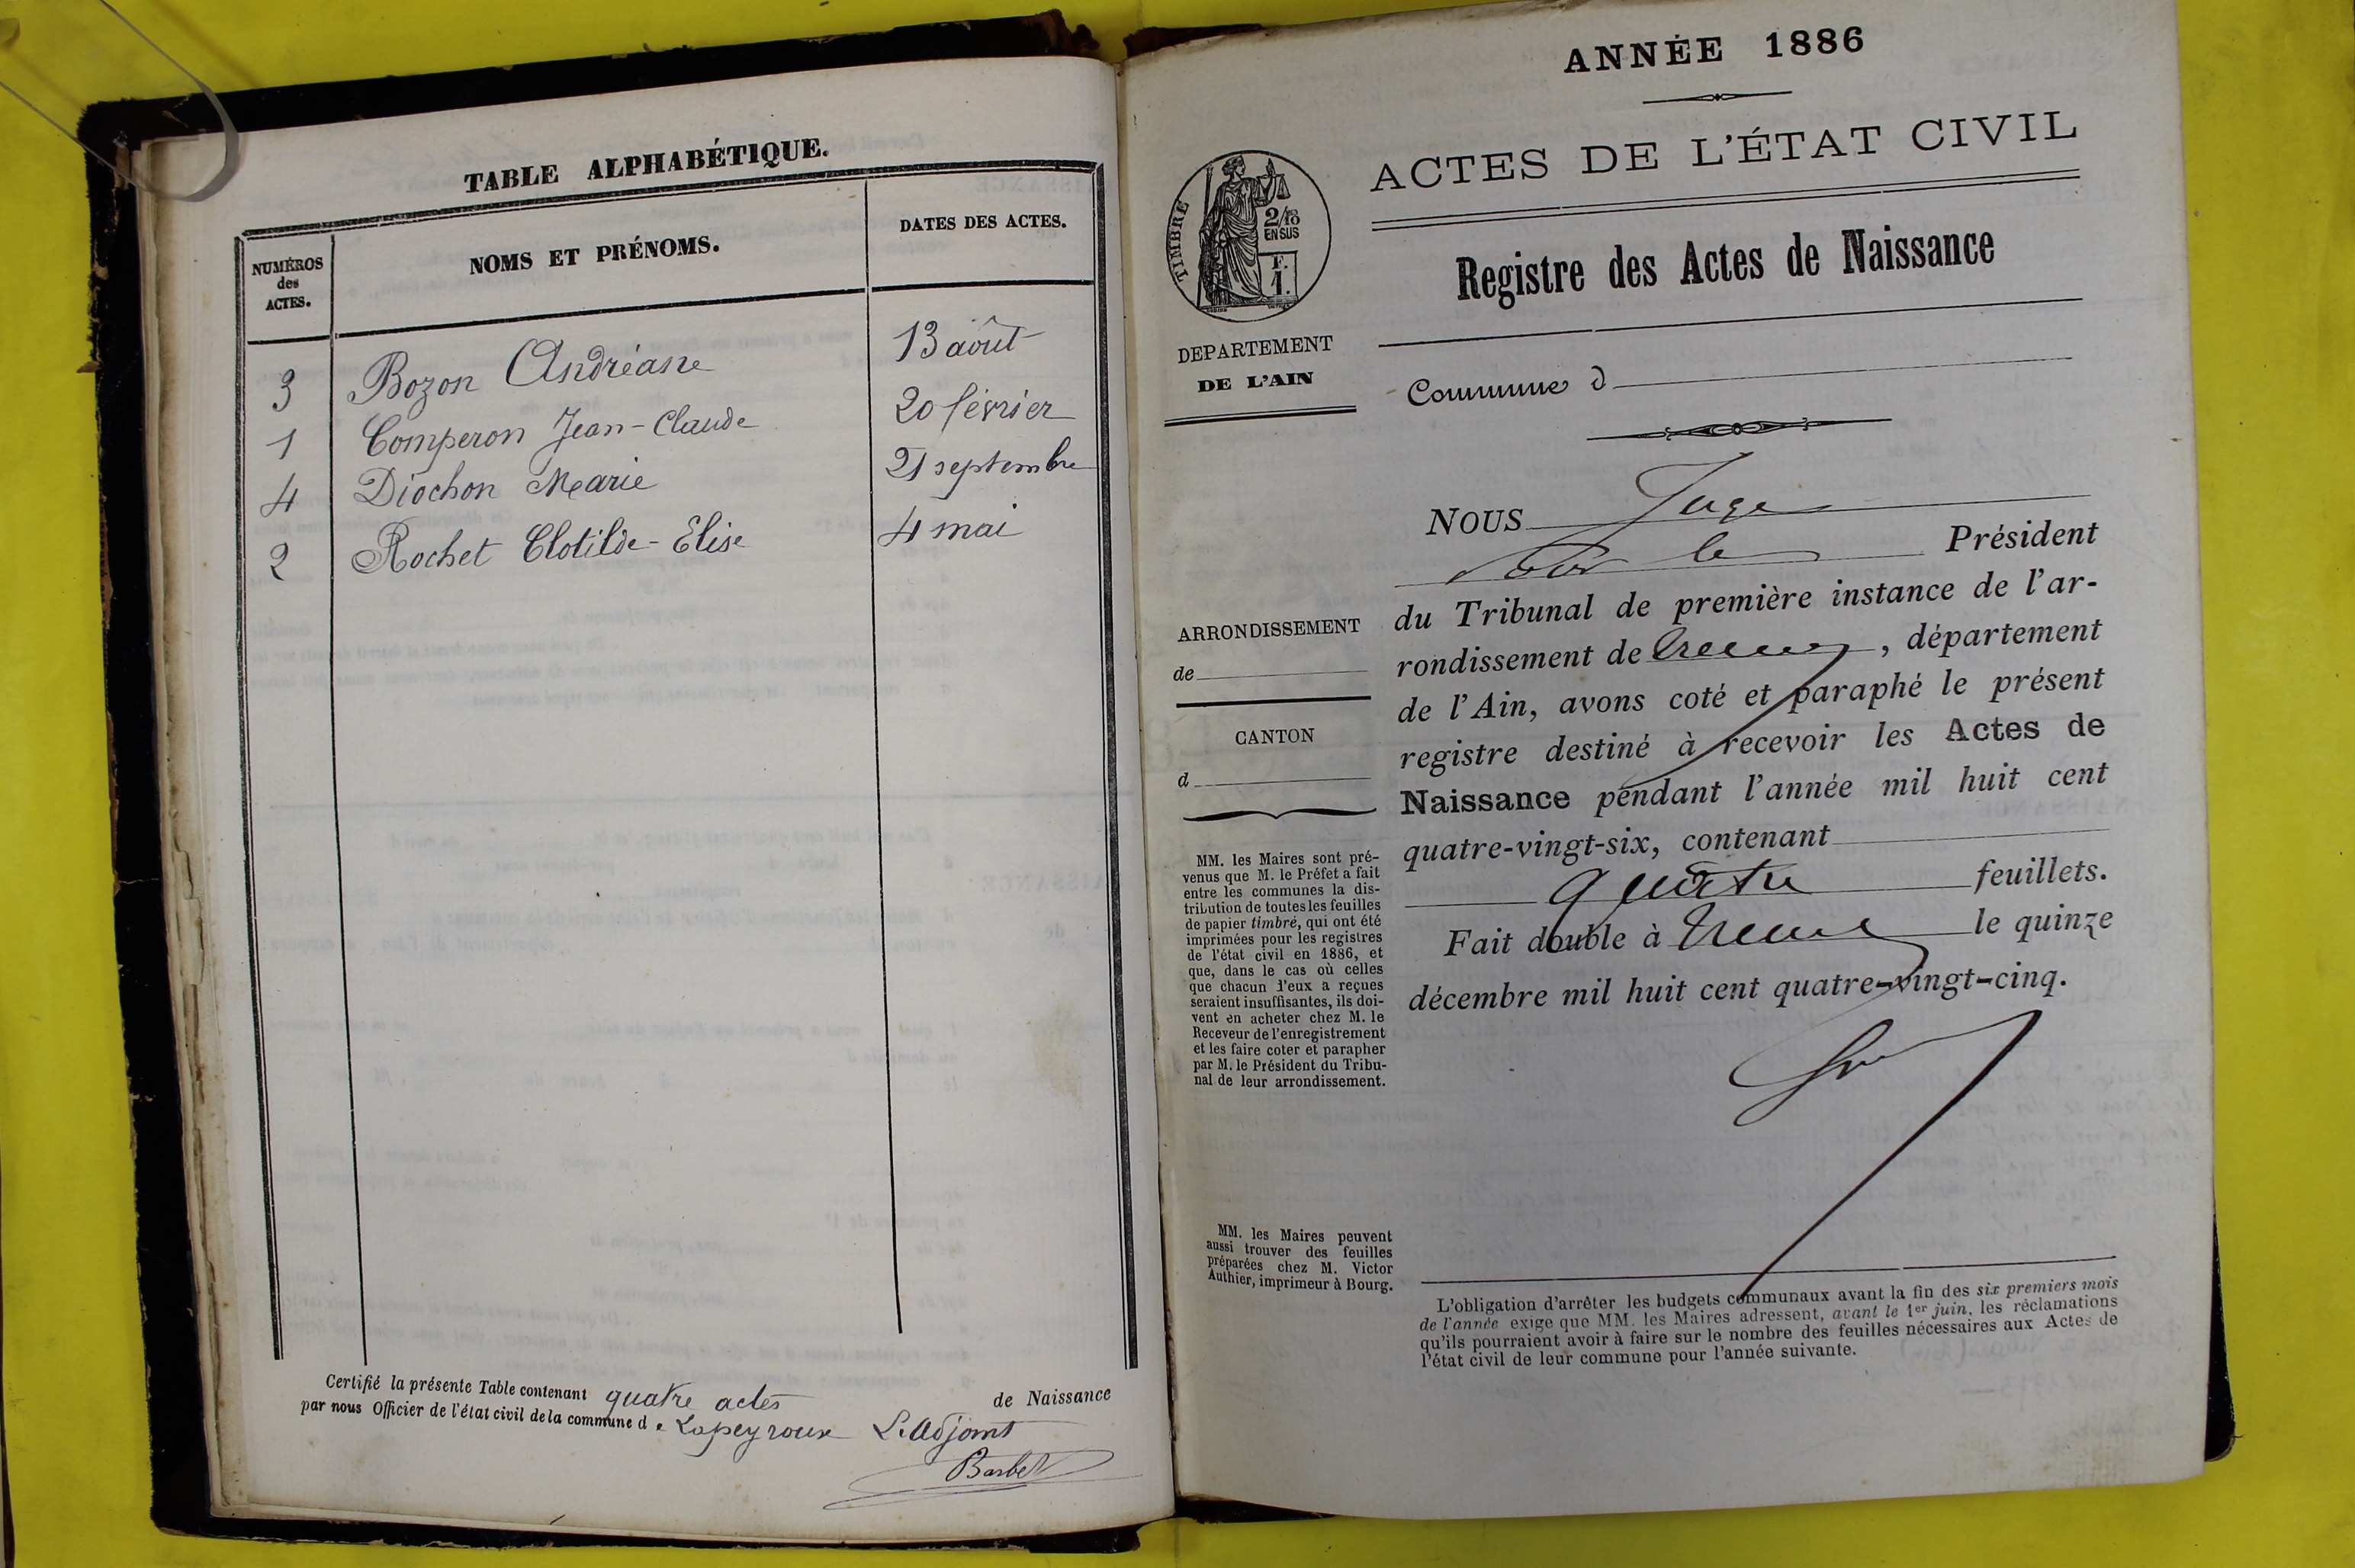 TABLE ALPHABÉTIQUE.
NUMÉROS
des
ACTES.
NOMS ET PRÉNOMS.
DATES DES ACTES.
3 Bozon Andréane 13 août
1 Comperon Jean-Claude 20 février
4 Diochon Marie 21 septembre
2 Rochet Clotilde-Elise 4 mai
Certifié la présente Table contenant quatre actes de Naissance
par nous Officier de l'état civil de la commune de Lapeyrouse L'adjoint
Barbet
ANNÉE 1886
ACTES DE L'ÉTAT CIVIL
TIMBRE
2/10
EN SUS
F.
1.
Registre des Actes de Naissance
DEPARTEMENT
DE L'AIN
Commune d
NOUS Juge
pour le Président
du Tribunal de première instance de l'ar-
rondissement de Trévoux, département
de l'Ain, avons coté et paraphé le présent
registre destiné à recevoir les Actes de
Naissance pendant l'année mil huit cent
quatre-vingt-six, contenant
quatre feuillets.
Fait double à Trévoux le quinze
décembre mil huit cent quatre-vingt-cinq.
ARRONDISSEMENT
de
CANTON
d
MM. les Maires sont pré-
venus que M. le Préfet a fait
entre les communes la dis-
tribution de toutes les feuilles
de papier timbré, qui ont été
imprimées pour les registres
de l'état civil en 1886, et
que, dans le cas où celles
que chacun d'eux a reçues
seraient insuffisantes, ils doi-
vent en acheter chez M. le
Receveur de l'enregistrement
et les faire coter et parapher
par M. le Président du Tribu-
nal de leur arrondissement.
MM. les Maires peuvent
aussi trouver des feuilles
préparées chez M. Victor
Authier, imprimeur à Bourg.
L'obligation d'arrêter les budgets communaux avant la fin des six premiers mois
de l'année exige que MM. les Maires adressent, avant le 1er juin, les réclamations
qu'ils pourraient avoir à faire sur le nombre des feuilles nécessaires aux Actes de
l'état civil de leur commune pour l'année suivante.